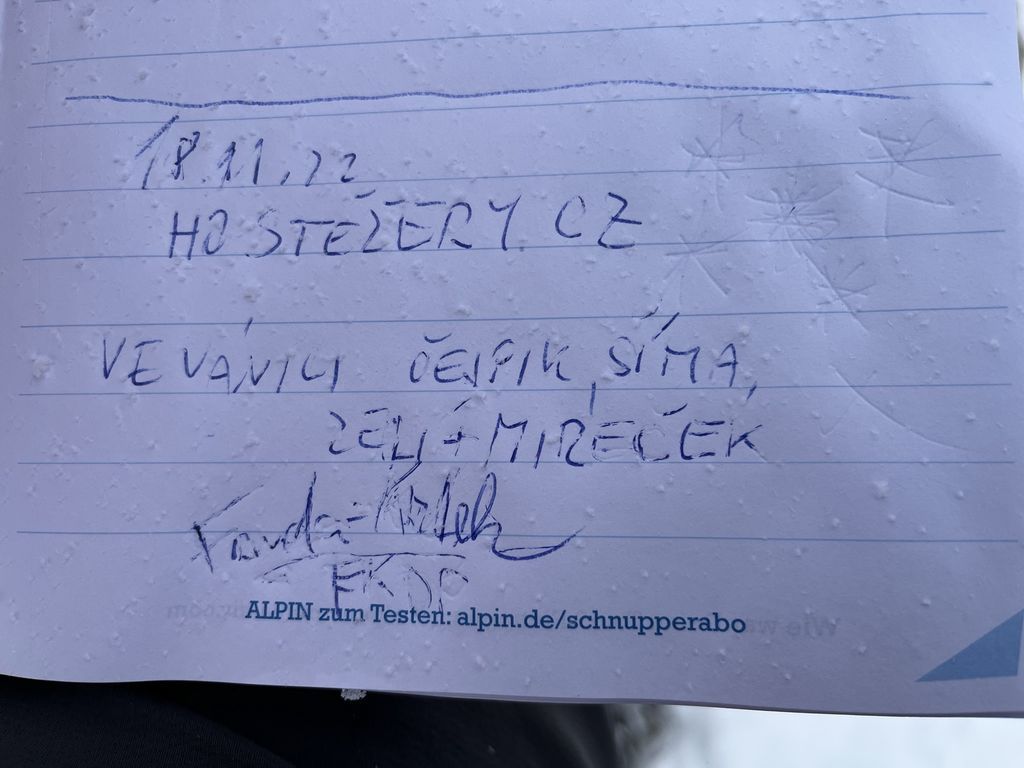 18.11.22
HOSTĚŽERY. CZ
VEVÁNICI ČEJPIK, SÍMA,
ZELÍ + MIREČEK
Fanda
FKDP
ALPIN zum Testen: alpin.de/schnupperabo